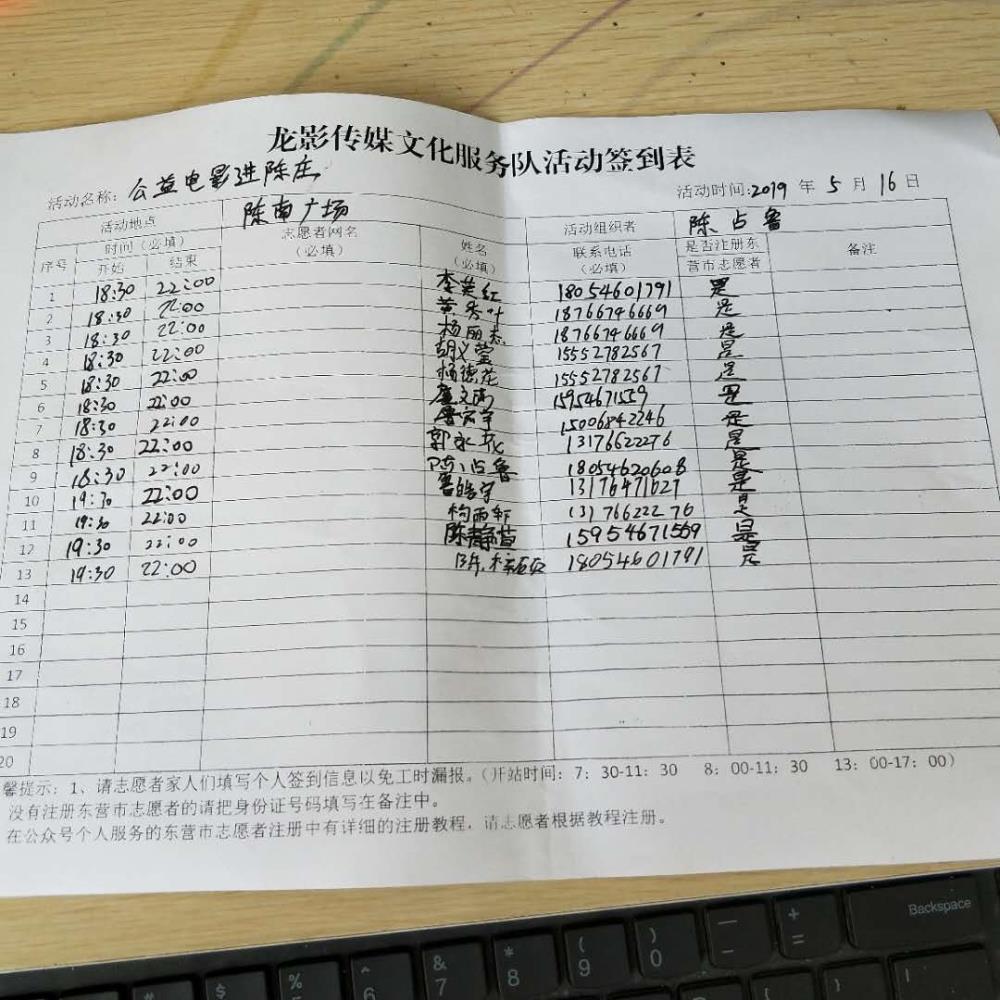 龙影传媒文化服务队活动签到表
活动名称：公益电影进陈庄 活动时间：2019 年 5 月 16 日
活动地点 陈南广场 活动组织者 陈占鲁
序号 时间（必填） 志愿者网名（必填） 姓名（必填） 联系电话（必填） 是否注册东营市志愿者 备注
开始 结束
1 18:30 22:00 李英红 18054601791 是
2 18:30 22:00 黄秀叶 18766746669 是
3 18:30 22:00 杨丽 18766746669 是
4 18:30 22:00 胡义莹 15552782567 是
5 18:30 22:00 杨德花 15552782567 是
6 18:30 22:00 15954671559 是
7 18:30 22:00 15006842246 是
8 18:30 22:00 郭永花 13176622276 是
9 18:30 22:00 陈占鲁 18054620608 是
10 19:30 22:00 13176471627 是
11 19:30 22:00 13176622276 是
12 19:30 22:00 陈静萱 15954671559 是
13 19:30 22:00 18054601791 是
14
15
16
17
18
19
20
馨提示：1、请志愿者家人们填写个人签到信息以免工时漏报。（开站时间：7：30-11：30 8：00-11：30 13：00-17：00）
没有注册东营市志愿者的请把身份证号码填写在备注中。
在公众号个人服务的东营市志愿者注册中有详细的注册教程，请志愿者根据教程注册。
Backspace
% 5
^ 6
& 7
* 8
( 9
) 0
— -
+ =